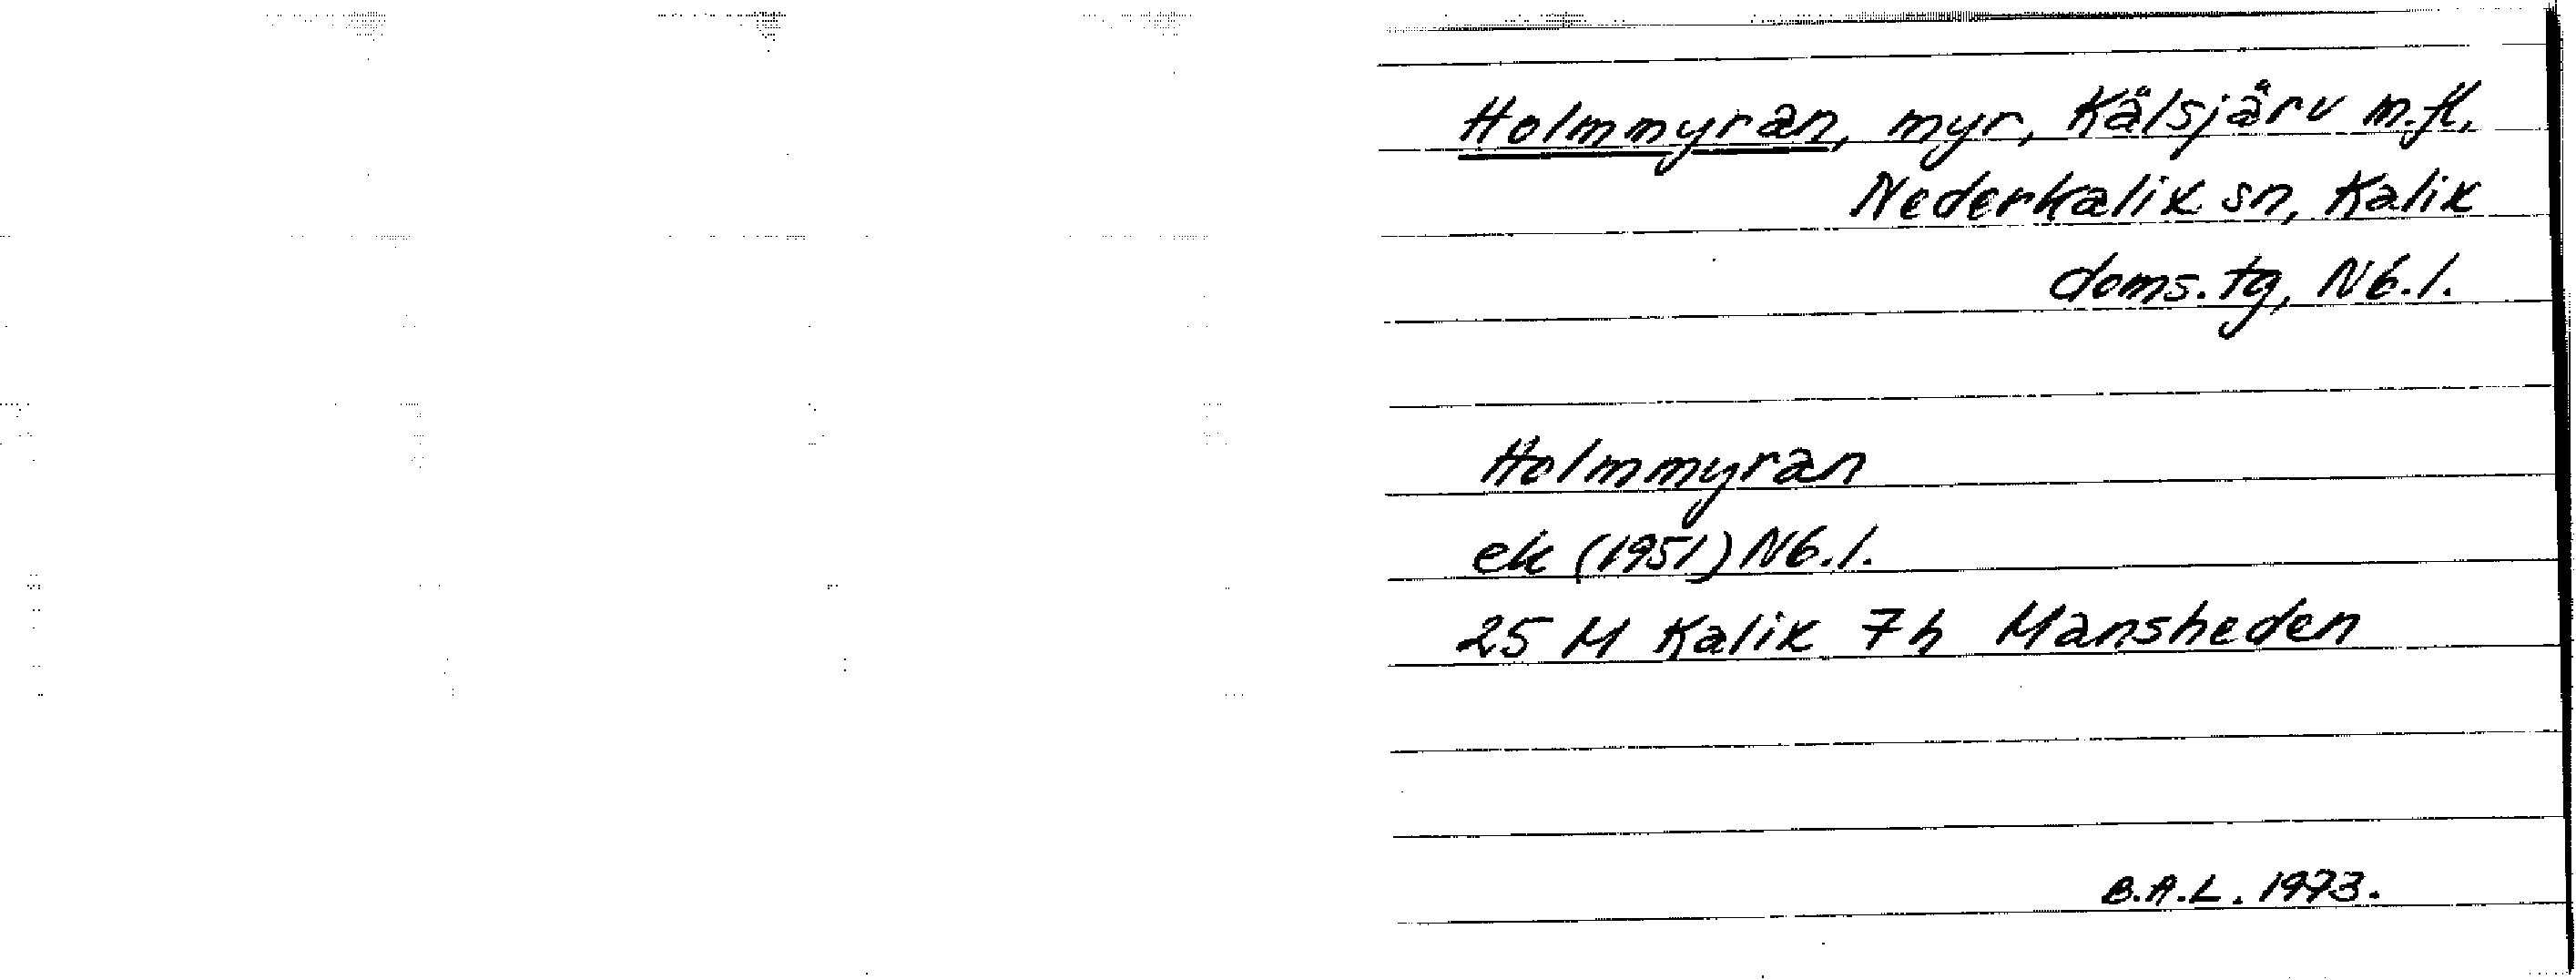 Holmmyran, myr, Kälsjärv m.fl,
Nederkalix sn, Kalix
doms.tg, Nb.l.
Holmmyran
ek (1951) Nb.l.
25 M Kalix 7h Mansheden
B.A.L. 1973.